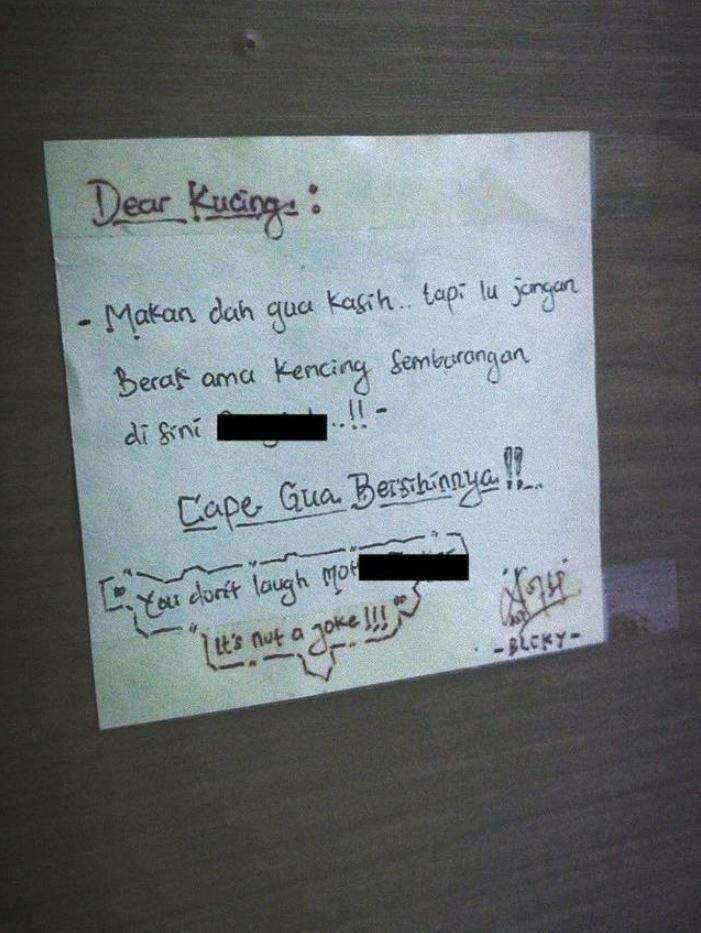 Dear Kucing :
- Makan dah gua kasih.. tapi lu jangan
Berak ama kencing sembarangan
di sini ..!! -
Cape Gua Bersihinnya !!
"You don't laugh Mot
It's not a joke !!!"
- BLCKY -